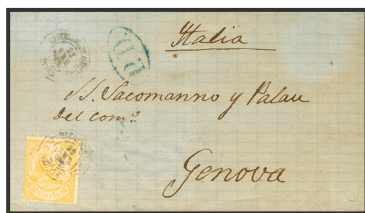 Italia
PD
SS. Sacomanno y Palau
del comº
Genova